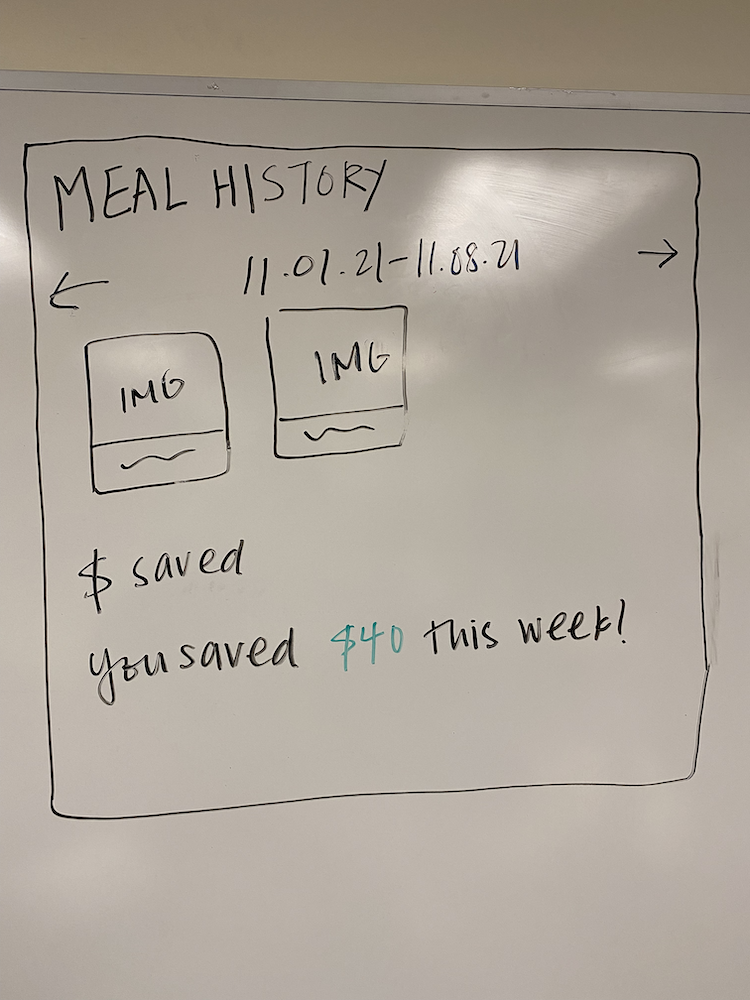 MEAL HISTORY
← 11.01.21-11.08.21 →
IMG IMG
$ saved
you saved $40 this week!